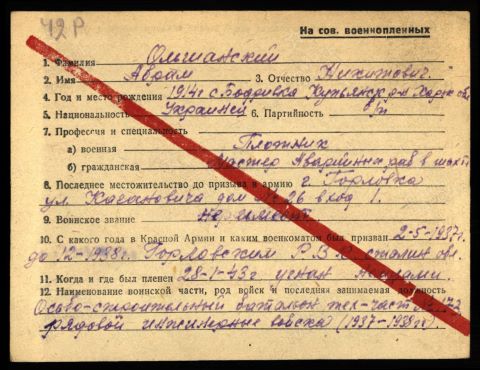 42 Р
На сов. военнопленных
1. Фамилия Ольшанский
2. Имя Абрам 3. Отчество Никитович
4. Год и место рождения 1914 г. с. Бодривка Купьянск р-н Харк. обл
5. Национальность Украинец 6. Партийность б/п
7. Профессия и специальность
а) военная Плотник
б) гражданская Мастер Аварийних раб в шахт
8. Последнее местожительство до призыва в армию г. Горловка
ул. Кагановича дом № 26 вход 1.
9. Воинское звание
10. С какого года в Красной Армии и каким военкоматом был призван 2-5-1937г.
до 12-1938г. Горловским Р.В.К. сталин обл.
11. Когда и где был пленен 28-1-43г
12. Наименование воинской части, род войск и последняя занимаемая должность
Особо-строительный баталон
рядовой инжинерные войска (1937-1938 г.)